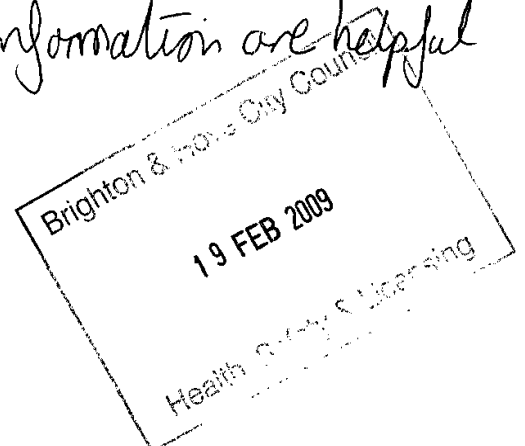 information are helpful
Brighton & Hove City Council
19 FEB 2009
Health Safety & Licensing